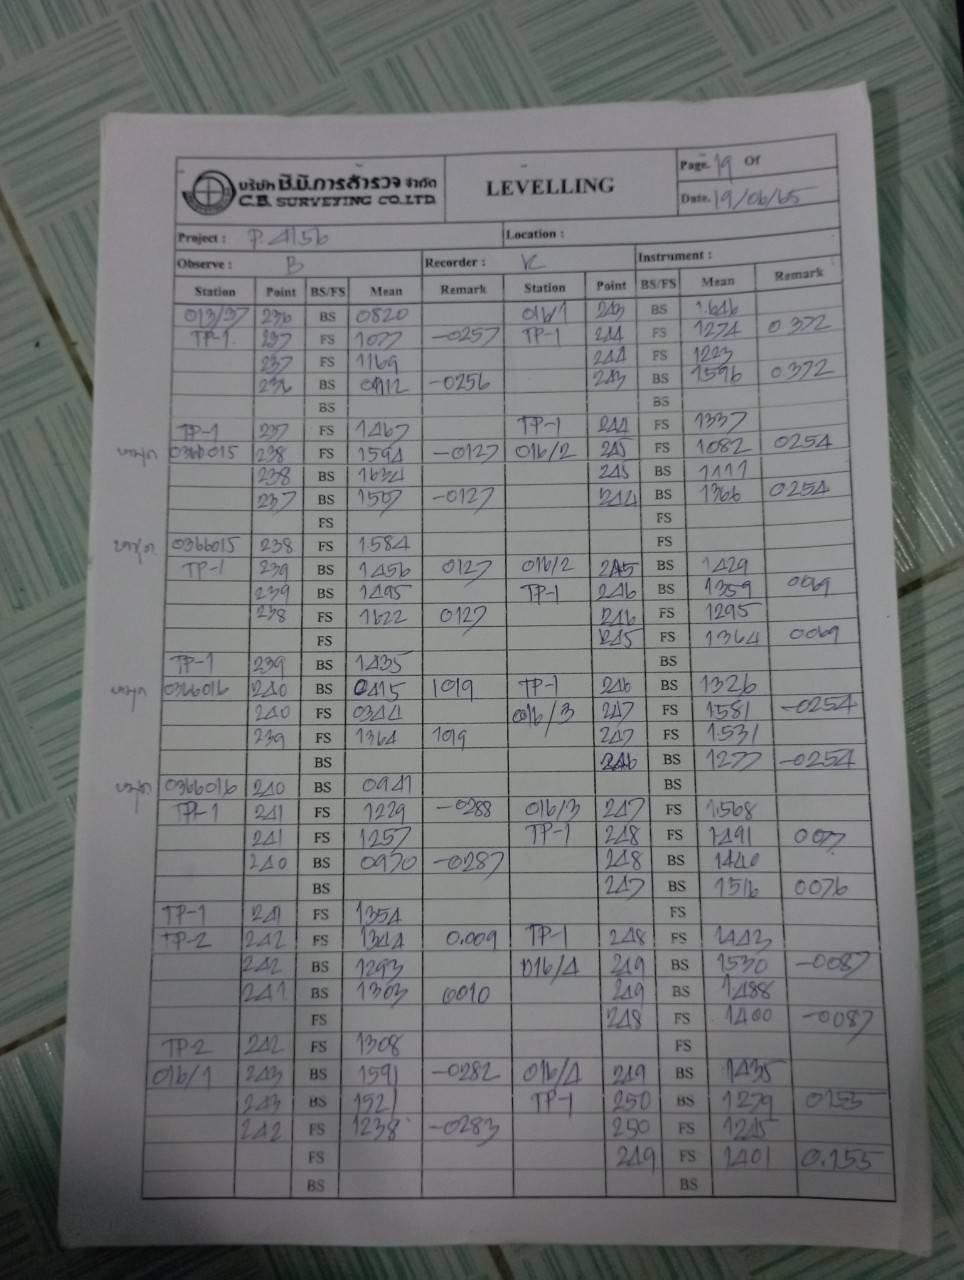 บริษัท ซี.บี.การสำรวจ จำกัด
C.B. SURVEYING CO.,LTD.
LEVELLING
Page. 19 Of
Date. 19/06/65
Project : P.4156
Location :
Observe : B Recorder : K Instrument :
Station Point BS/FS Mean Remark Station Point BS/FS Mean Remark
013/37 236 BS 0820 016/1 243 BS 1.646
TP-1 237 FS 1077 -0257 TP-1 244 FS 1274 0372
237 FS 1169 244 FS 1223
236 BS 0912 -0256 243 BS 1596 0372
BS BS
TP-1 237 FS 1467 TP-1 244 FS 1337
หมุด 0366015 238 FS 1594 -0127 016/2 245 FS 1082 0254
238 BS 1634 245 BS 1111
237 BS 1507 -0127 244 BS 1366 0254
FS FS
หมุด 0366015 238 FS 1.584 FS
TP-1 239 BS 1456 0127 016/2 245 BS 1429
239 BS 1495 TP-1 246 BS 1359 0069
238 FS 1622 0127 246 FS 1295
FS 245 FS 1364 0069
TP-1 239 BS 1435 BS
หมุด 0366016 240 BS 0415 1019 TP-1 246 BS 1326
240 FS 0344 016/3 247 FS 1581 -0254
239 FS 1364 1019 247 FS 1.531
BS 246 BS 1277 -0254
หมุด 0366016 240 BS 0941 BS
TP-1 241 FS 1229 -0288 016/3 247 FS 1.568
241 FS 1257 TP-1 248 FS 1491 0077
240 BS 0970 -0287 248 BS 1440
BS 247 BS 1516 0076
TP-1 241 FS 1354 FS
TP-2 242 FS 1344 0.009 TP-1 248 FS 1443
242 BS 1293 016/4 249 BS 1530 -0087
241 BS 1303 0010 249 BS 1.488
FS 248 FS 1400 -0087
TP-2 242 FS 1308 FS
016/1 243 BS 1591 -0282 016/4 249 BS 1435
243 BS 1521 TP-1 250 BS 1279 0155
242 FS 1238 -0283 250 FS 1245
FS 249 FS 1401 0.155
BS BS